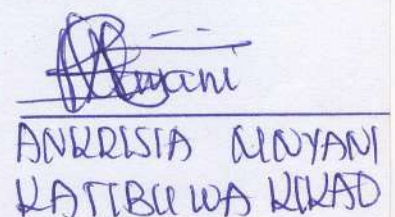 ANKRISIA MNYANI
KATIBU WA KIKAO